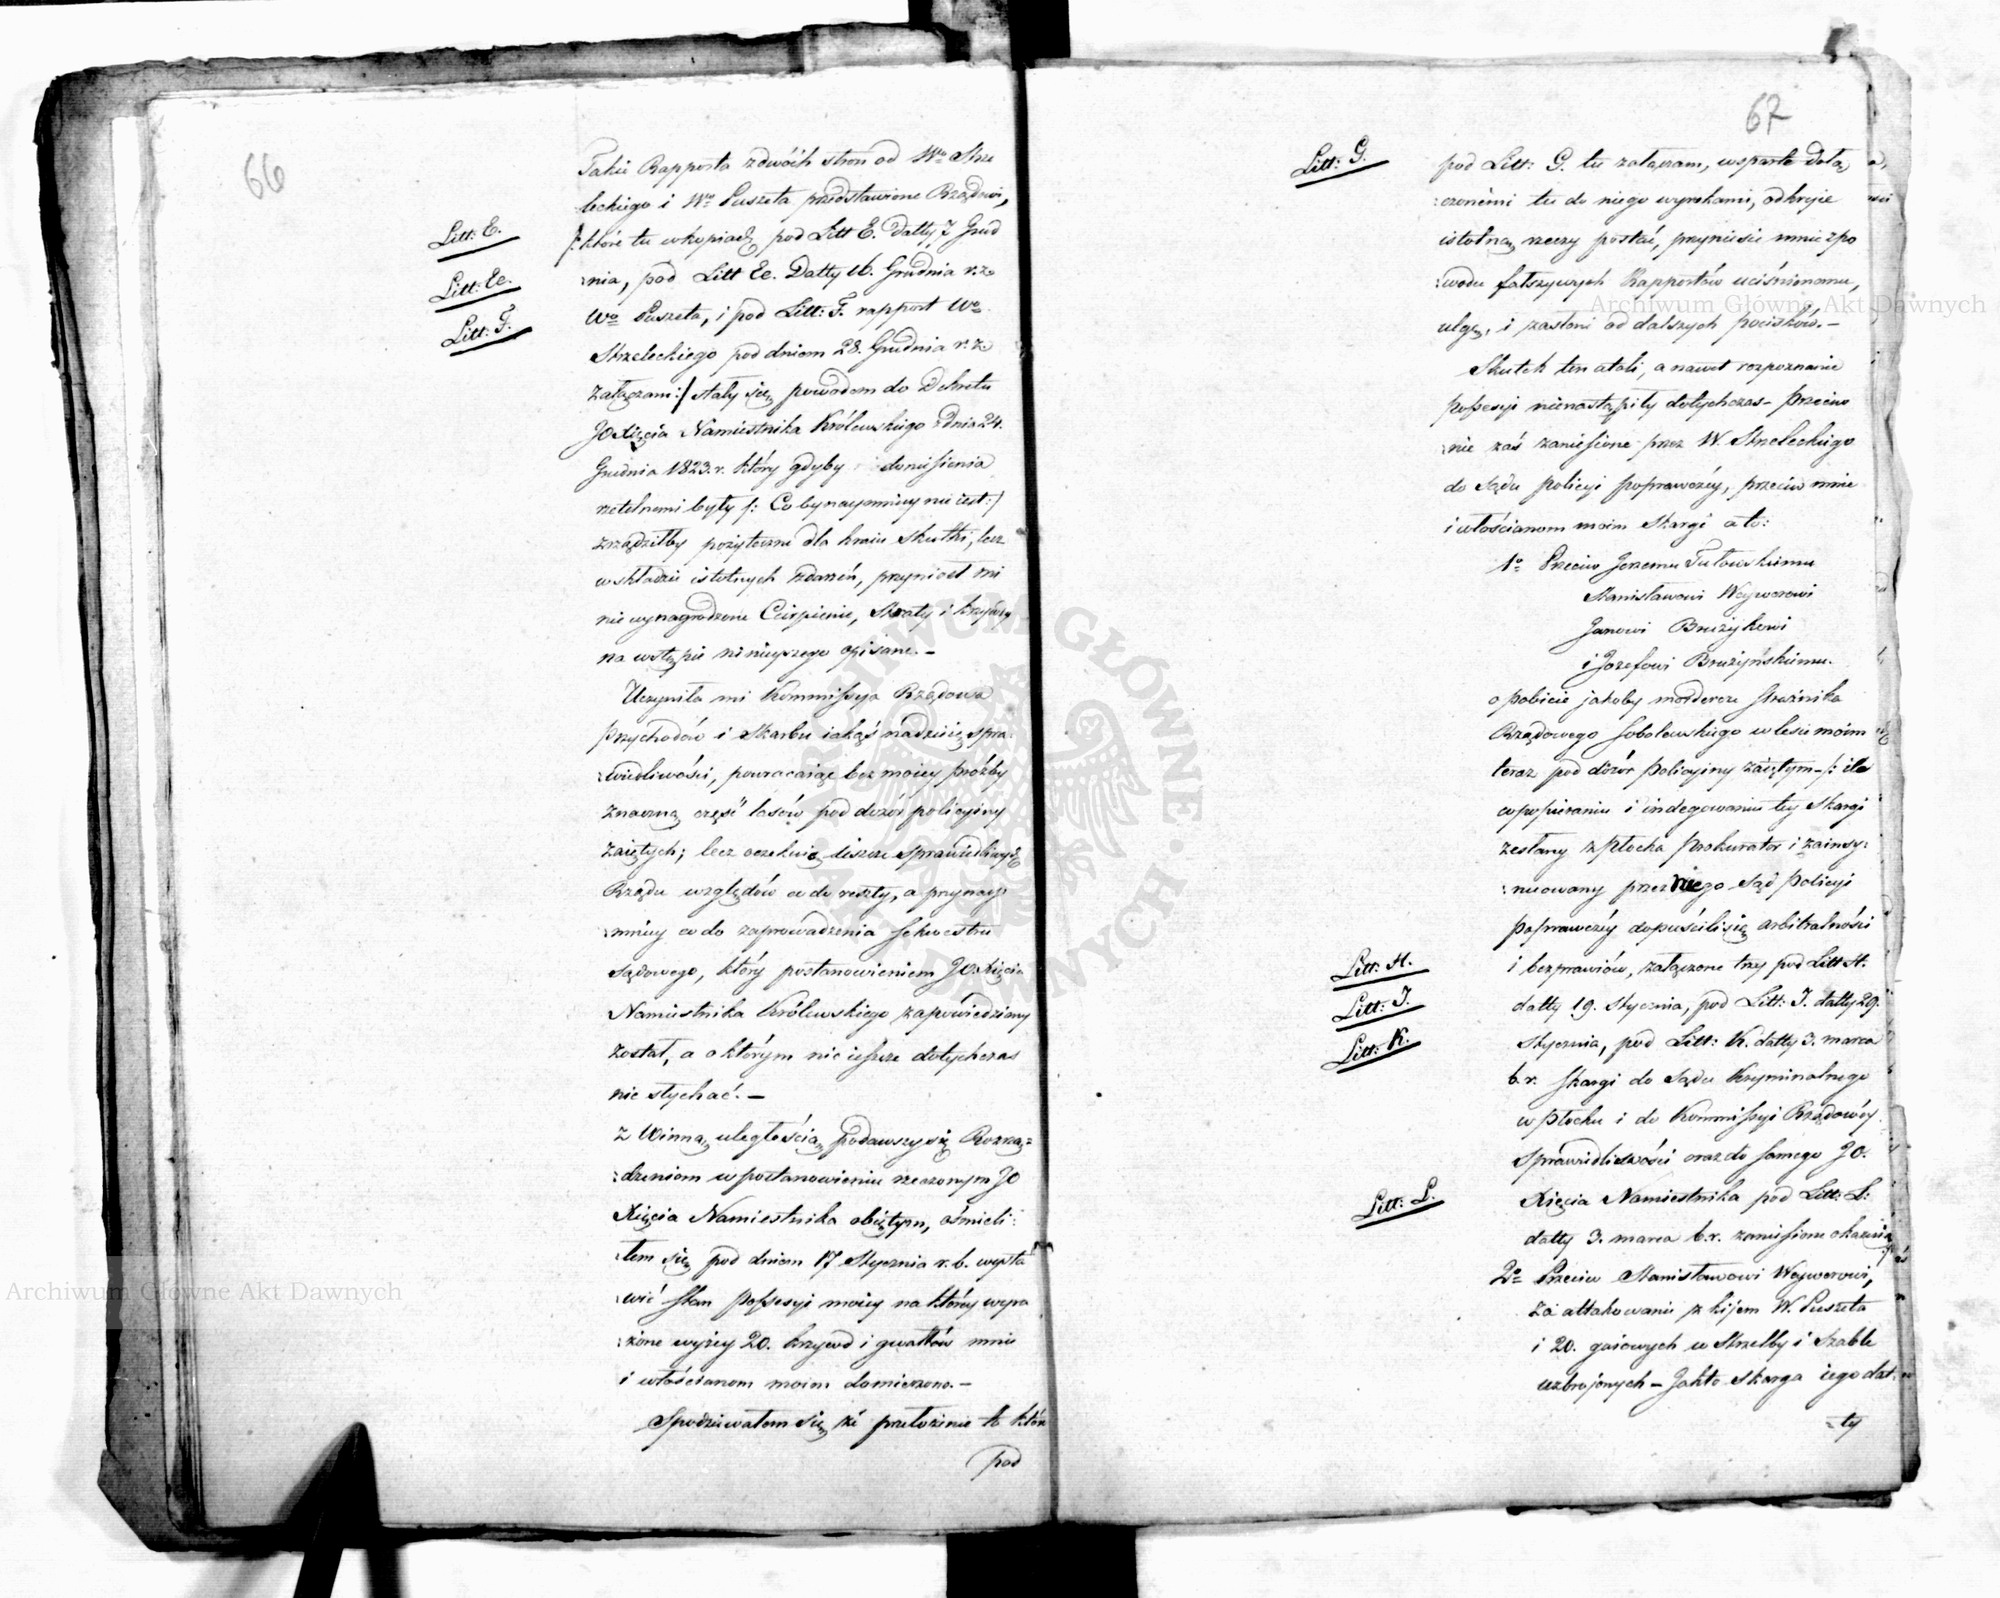 66
Takie Rapporta z dwóch stron od Wo Strze
leckiego i Wo Puszeta przedstawione Rządowi,
Litt: E.
/: które tu w kopiach pod Litt E. Datty 7 Grud
Litt: Ee.
:nia, pod Litt Ee. Datty 16. Grudnia r. z.
Litt: F.
Wo Puszeta, i pod Litt: F. rapport Wo
Strzeleckiego pod dniem 28. Grudnia r. z.
załączam :/ stały się powodem do Dekretu
JO Xięcia Namiestnika Królewskiego z Dnia 24.
Grudnia 1823. r. który gdyby doniesienia
rzetelnemi były /: Co bynaymniey nie iest :/
zrządziłby pożyteczne dla kraiu Skutki, lecz
w składzie istotnych zdarzeń, przyniosł mi
niewynagrodzone Cierpienie, Straty i krzywdy
na wstępie ninieyszego opisane. –
Uczyniła mi Kommissya Rządowa
Przychodów i Skarbu iakąś nadzieię spra:
:wiedliwości, powracaiąc bez moiey prośby
znaczną część lasów pod dozór policyiny
zaiętych; lecz oczekuię ieszcze sprawiedliwych
Rządu względów co do reszty, a przynay
:mniey co do zaprowadzenia Sekwestru
Sądowego, który postanowieniem JO Xięcia
Namiestnika Królewskiego zapowiedziany
został, a o którym nic ieszcze dotychczas
nie słychać. –
Z Winną uległością poddawszy się Rozrzą=
:dzeniom w postanowieniu rzeczonym JO
Xięcia Namiestnika obiętym, ośmieli:
:łem się pod dniem 17 Stycznia r. b. wysta
:wić Stan Possesyi moiey na którey wyra
:żone wyżey 20. krzywd i gwałtów mnie
i włościanom moim domierzono. –
Spodziewałem się, że przełożenie to które
pod
67
Litt: G.
pod Litt: G. tu załączam, wsparte dołą
:czonémi tu do niego wyrokami, odkryie
istotną rzeczy postać, przyniesie mnie z po
:wodu fałszywych Rapportów uciśnionemu,
ulgę, i zasłoni od dalszych pocisków. –
Skutek ten atoli, a nawet rozpoznanie
possesyi nienastąpiły dotychczas – Przeciw
:nie zaś zaniesione przez W. Strzeleckiego
do Sądu policyi poprawczéy, przeciw mnie
i włościanom moim Skargi a to:
1o Przeciw Jerzemu Tułowskiemu
Stanisławowi Weyworowi
Janowi Bruzykowi
i Jozefowi Bruzyńskiemu.
o pobicie jakoby mordercze strażnika
Rządowego Sobolewskiego w lesie moim
teraz pod dozór Policyiny zaiętym – /: ile
w popieraniu i indegowaniu téy Skargi
zesłany z Płocka Prokurator i zainsy:
:nuowany przez niego Sąd Policyi
Poprawczéy dopuścili się arbitralności
Litt: H.
i bezprawiów, załączone trzy pod Litt H.
Litt: I.
datty 19. Stycznia, pod Litt: I. datty 29.
Litt: K.
Stycznia, pod Litt: K. datty 3. marca
b. r. Skargi do Sądu Kryminalnego
w Płocku i do Kommissyi Rządowéy
Sprawiedliwości oraz do samego JO.
Litt: L.
Xięcia Namiestnika pod Litt: L:
datty 3. marca b. r. zaniesione okazuią
2o Przeciw Stanisławowi Weyworowi,
za attakowanie z kijem W. Puszeta
i 20. gaiowych w Strzelby i Szable
uzbrojonych – Jakto Skarga iego dat:
:ty
Archiwum Główne Akt Dawnych
Archiwum Główne Akt Dawnych
ARCHIWUM GŁÓWNE AKT DAWNYCH